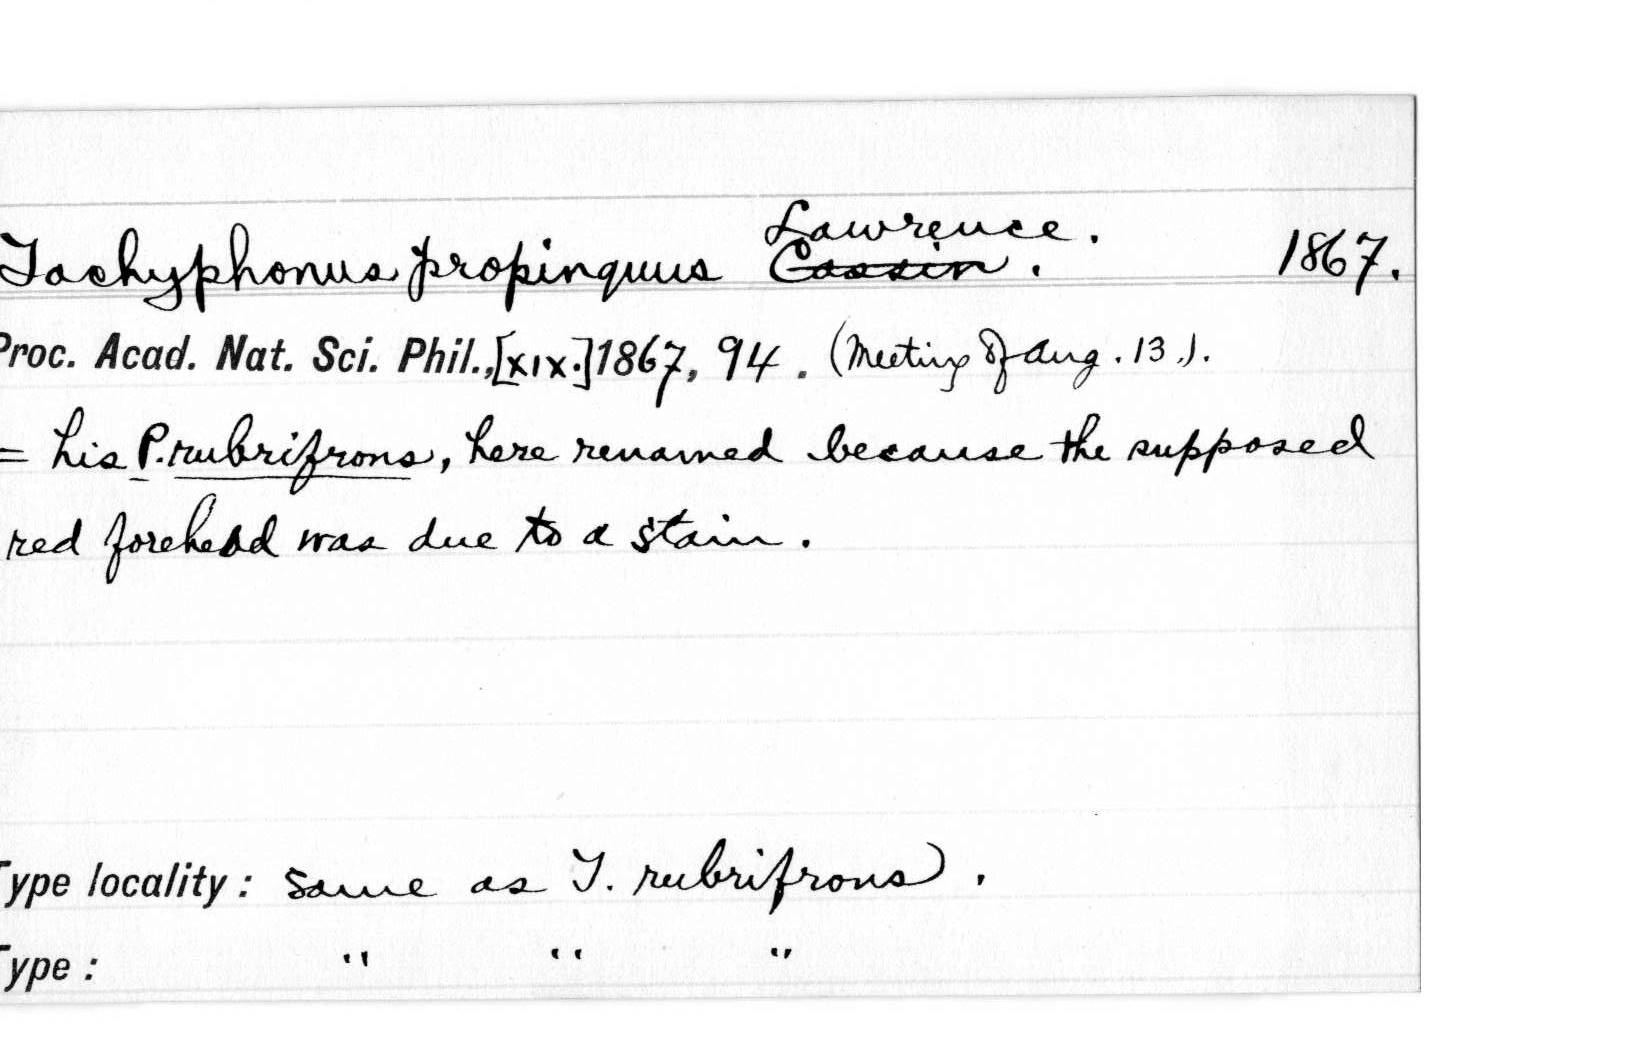 Tachyphonus propinquus Lawrence. ~~Cassin~~. 1867.
Proc. Acad. Nat. Sci. Phil., [XIX.] 1867, 94. (Meeting of Aug. 13.).
= his P. rubrifrons, here renamed because the supposed
red forehead was due to a stain.
Type locality: Same as T. rubrifrons.
Type: " " "